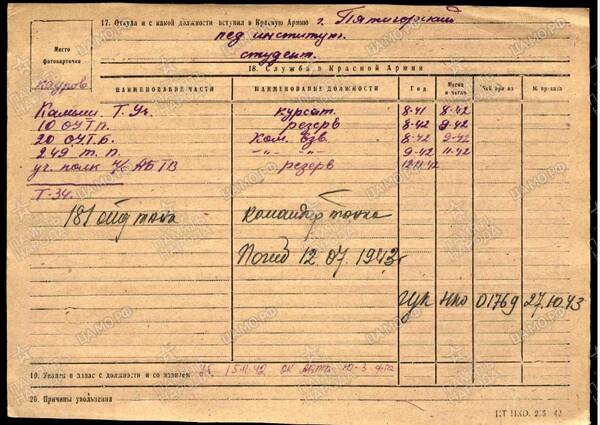 17. Откуда и с какой должности вступил в Красную Армию г. Пятигорский
пед институт.
студент.
Место фотокарточки
кадров
18. Служба в Красной Армии
НАИМЕНОВАНИЕ ЧАСТИ НАИМЕНОВАНИЕ ДОЛЖНОСТИ Год Месяц и число Чей приказ № приказа
Камыш. Т. Уч. курсант. 8-41 8-42
10 ОУТП. резерв 8-42 9-42
20 ОУТ.Б. Ком. взв. 8-42 9-42
249 т. п. -"- -"- 9-42 11-42
уч. полк АБТВ резерв 12.11.42
Т-34.
181 танк командир танка
Погиб 12.07.1943г
ГУК НКО 01769 27.10.43
19. Уволен в запас с должности и со званием 15.11.42 ОК АБТВ Ю-З ф-та
20. Причины увольнения